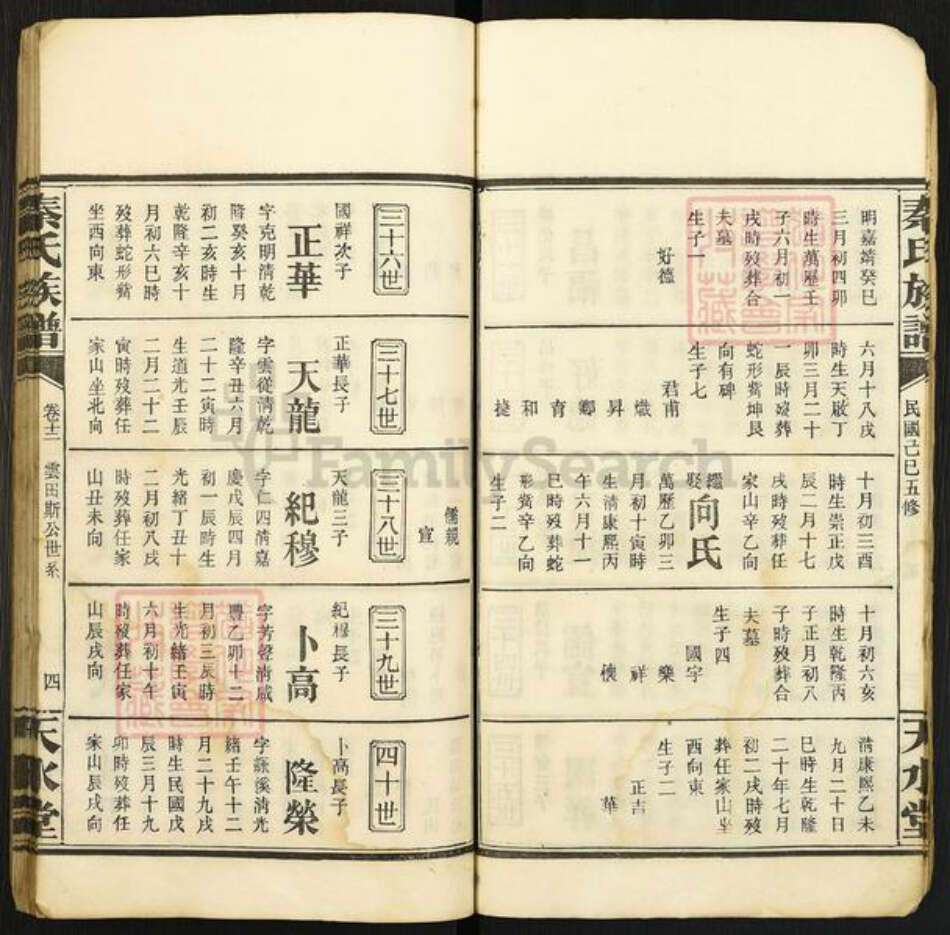 秦氏族譜
民國己巳五修
天水堂
明嘉靖癸巳
三月初四卯
時生萬歷壬
子六月初一
戌時歿葬合
夫墓
生子一
好德
六月十八戌
時生天啟丁
卯三月二十
一辰時歿葬
蛇形嘴坤艮
向有碑
生子七
君甫
熾
昇
卿
育
和
捷
十月初三酉
時生崇正戊
辰二月十七
戌時歿葬任
家山辛乙向
繼娶
向氏
萬歷乙卯三
月初十寅時
生清康熙丙
午六月十一
巳時歿葬蛇
形嘴辛乙向
生子二
儒親
宣
十月初六亥
時生乾隆丙
子正月初八
子時歿葬合
夫墓
生子四
國字
樂
祥
懷
清康熙乙未
九月二十日
巳時生乾隆
二十年七月
初二戌時歿
葬任家山坐
西向東
生子二
正吉
華
三十六世
國祥次子
正華
字克明清乾
隆癸亥十月
初二亥時生
乾隆辛亥十
月初六巳時
歿葬蛇形嘴
坐西向東
三十七世
正華長子
天龍
字雲從清乾
隆辛丑六月
二十二寅時
生道光壬辰
二月二十二
寅時歿葬任
家山坐北向
三十八世
天龍三子
紀穆
字仁四清嘉
慶戊辰四月
初一辰時生
光緒丁丑十
二月初八戌
時歿葬任家
山丑未向
三十九世
紀穆長子
卜高
字芳聲清咸
豐乙卯十二
月初三辰時
生光緒壬寅
六月初十午
時歿葬任家
山辰戌向
四十世
卜高長子
隆榮
字詠溪清光
緒壬午十二
月二十九戌
時生民國戊
辰三月十九
卯時歿葬任
家山辰戌向
秦氏族譜
卷十二
雲田斯公世系
四
天水堂
FamilySearch